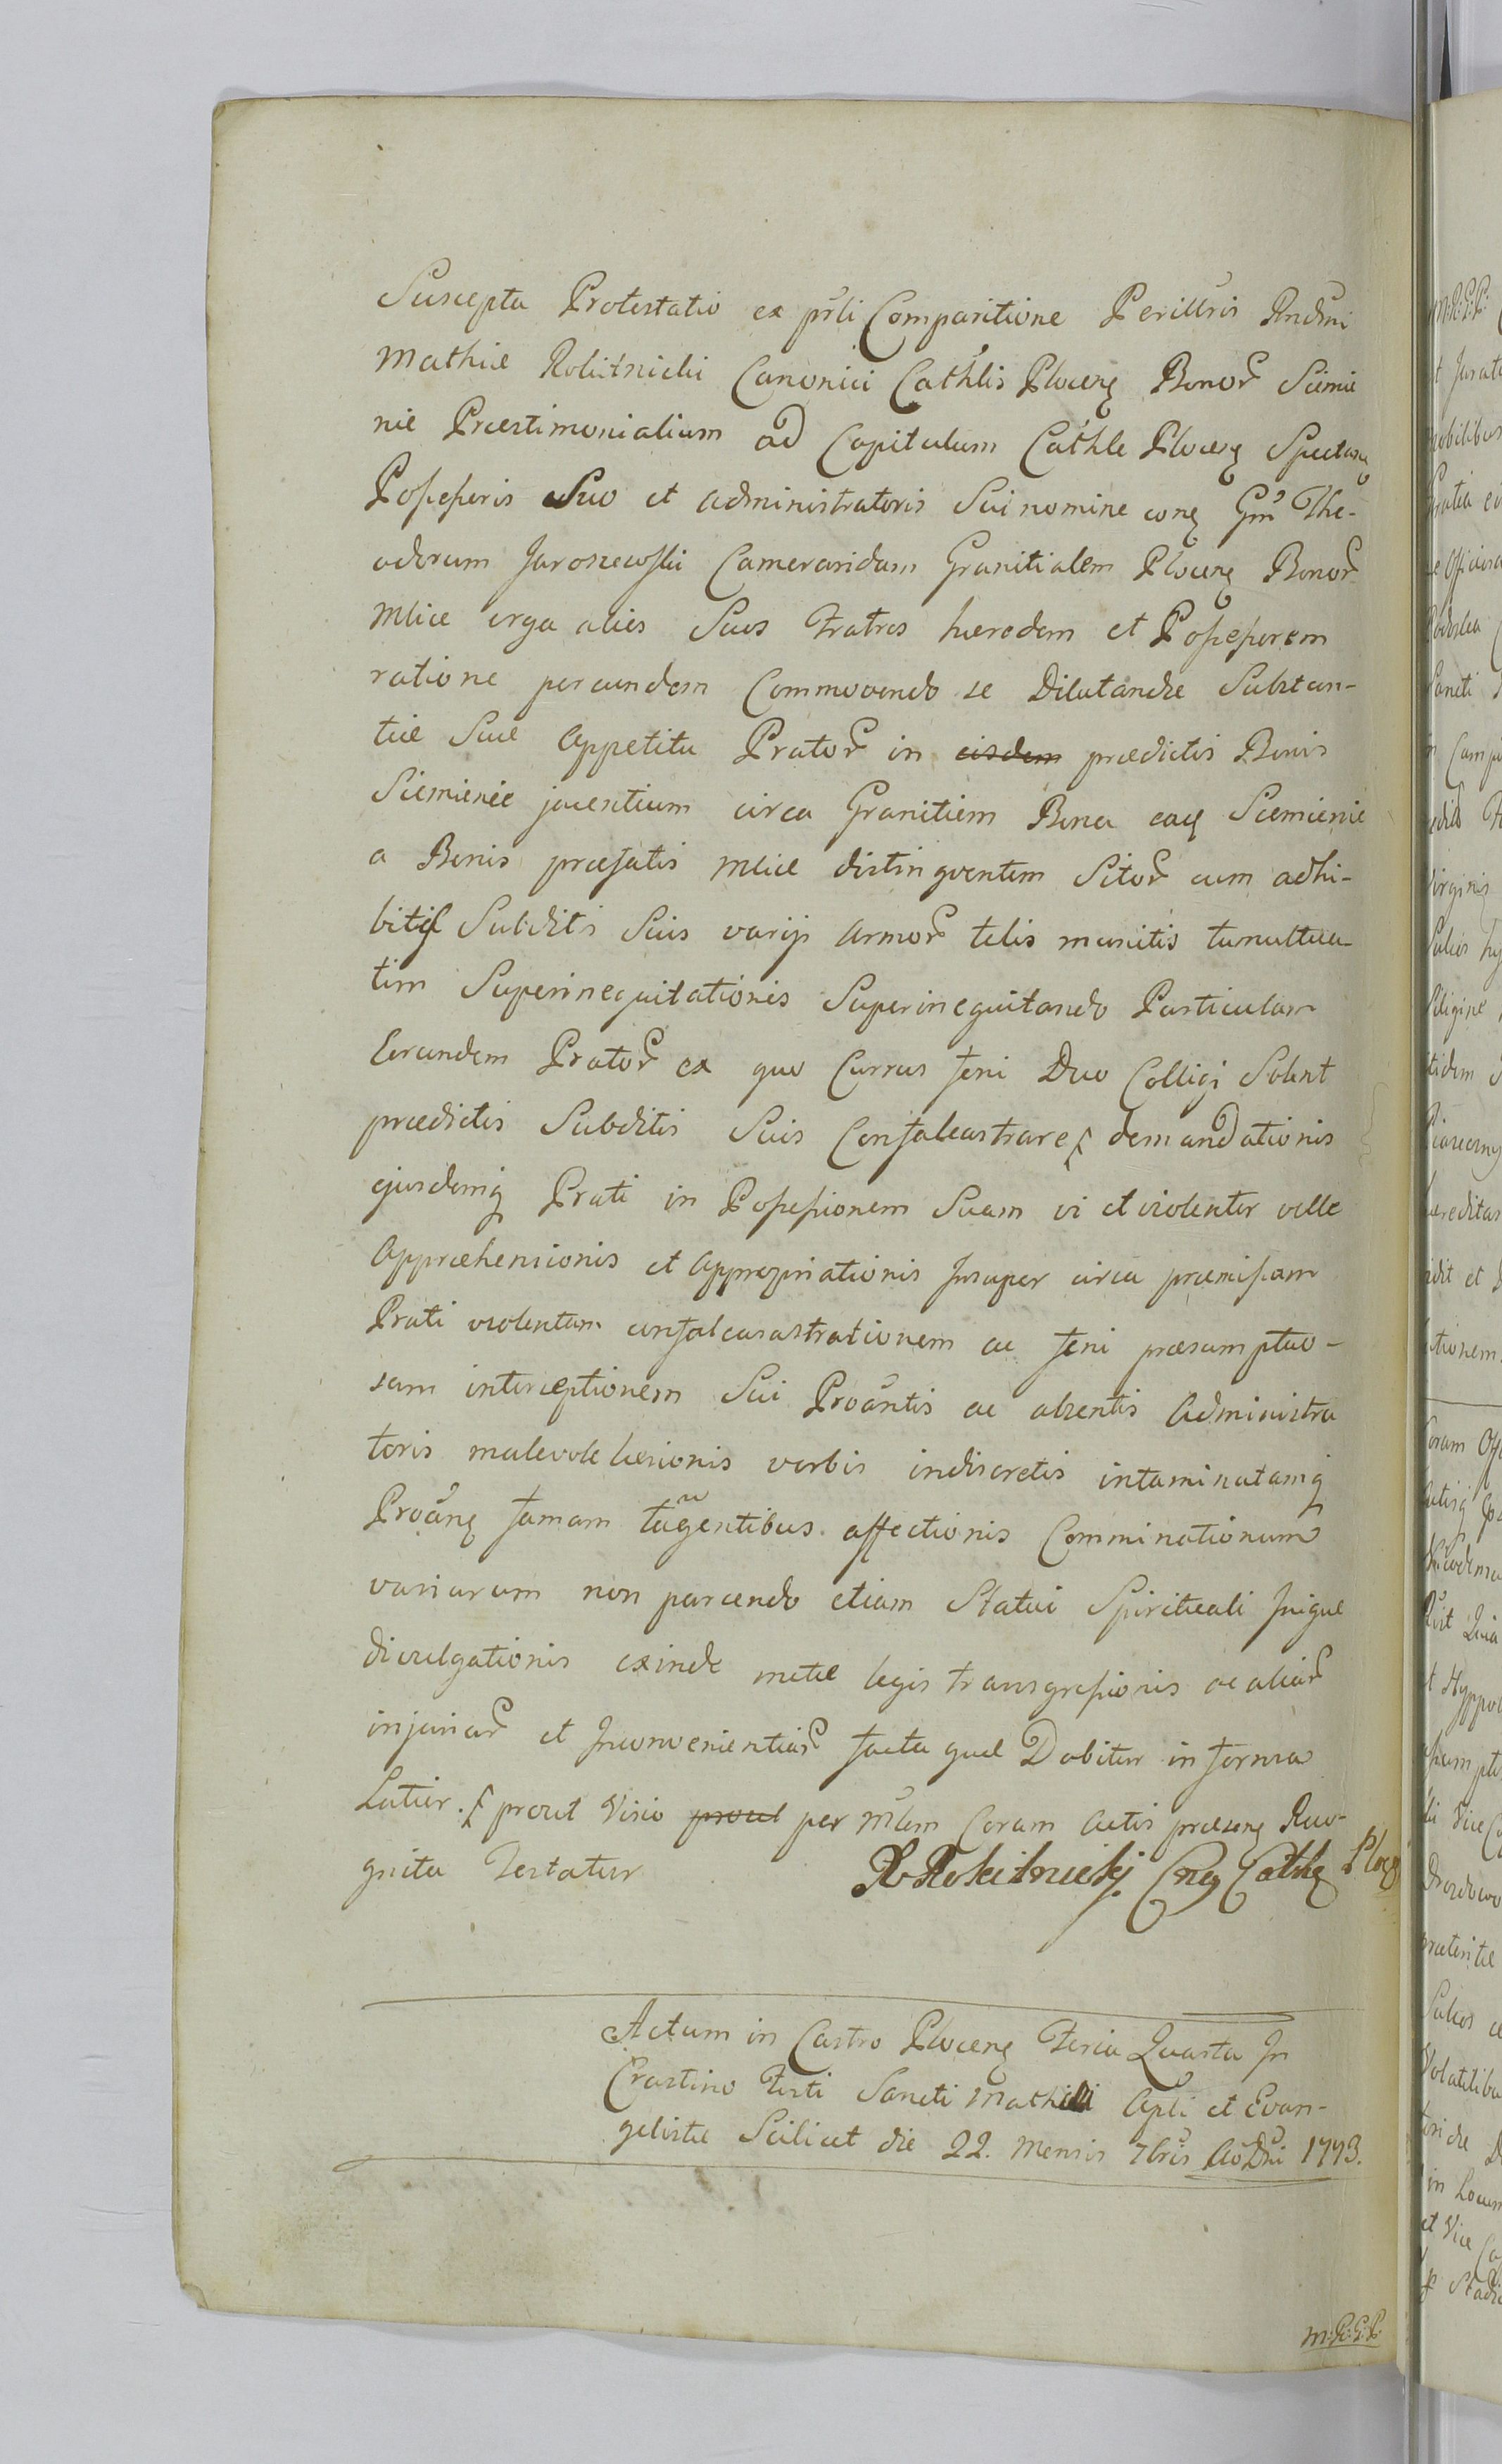 Suscepta Protestatio ex prli Comparitione Perillris Rndmi
Mathiæ Rokitnicki Canonici Cathlis Plocen Bonor Siemie
niæ Præstimonialium ad Capitulum Cathle Plocen Spectan
Possessoris Suo et administratoris Sui nomine con Gm The-
odorum Jaroszewski Camerarium Granitialem Plocen Bonor
Mlice erga alios Suos Fratres hæredem et Possessorem
ratione per eundem Commovendo se Dilatandæ Substan-
tiæ Suæ Appetitu Prator in eisdem prædictis Bonis
Siemienie jacentium circa Granitiem Bona eaq Siemienie
a Bonis præfatis Mlice distinguentem Sitor cum adhi-
bitis Subditis Suis varijs Armor telis munitis tumultua-
tim Superinequitationis Superinequitando Particulam
Eorundem Prator ex quo Currus feni Duo Colligi Solent
prædictis Subditis Suis Confalcastrare demandationis
ejusdemq Prati in Possessionem Suam vi et violenter velle
Appræhensionis et Appropriationis Insuper circa præmissam
Prati violentam confalcasastrationem ac feni præsumptuo-
sam interceptionem Sui Proantis ac absentis Administra
toris malevolæ læsionis verbis indiscretis intaminatamq
Proanq famam tagentibus affectionis Comminationum
variarum non parcendo etiam Statui Spirituali Iniquæ
divulgationis exinde metæ legis transgressionis ac aliar
injuriar et Inconvenientiar facta quæ Dabitur in forma
Latior. prout Visio prout per Mlem Coram Actis præsen Reco-
gnita Testatur
X Rokitnicki Cng Cathg Plocg
Actum in Castro Plocen Feria Quarta In
Crastino Festi Sancti Mathæi Apli et Evan-
gelistæ Scilicet die 22. Mensis 7bris Ao Dni 1773.
M:R:G:P: